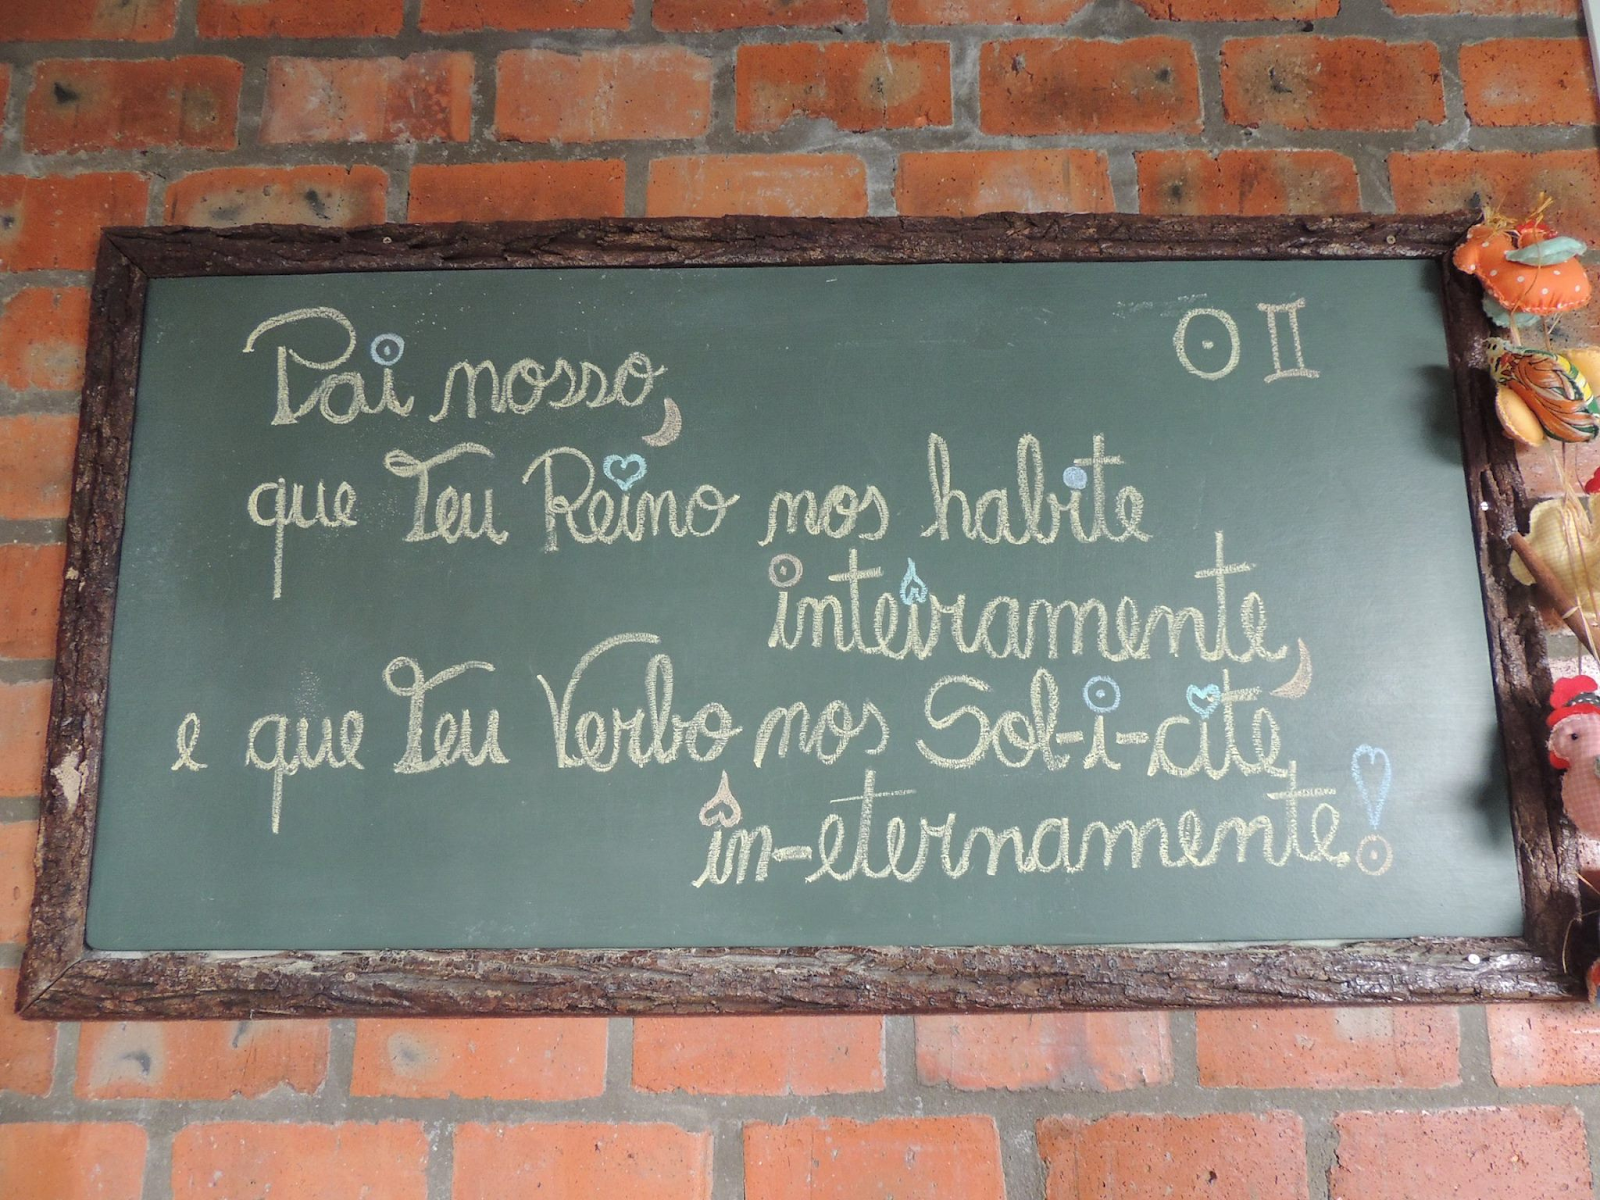 ☉ ♊
Pai nosso,
que Teu Reino nos habite
inteiramente,
e que Teu Verbo nos Sol-i-cite,
in-eternamente.!